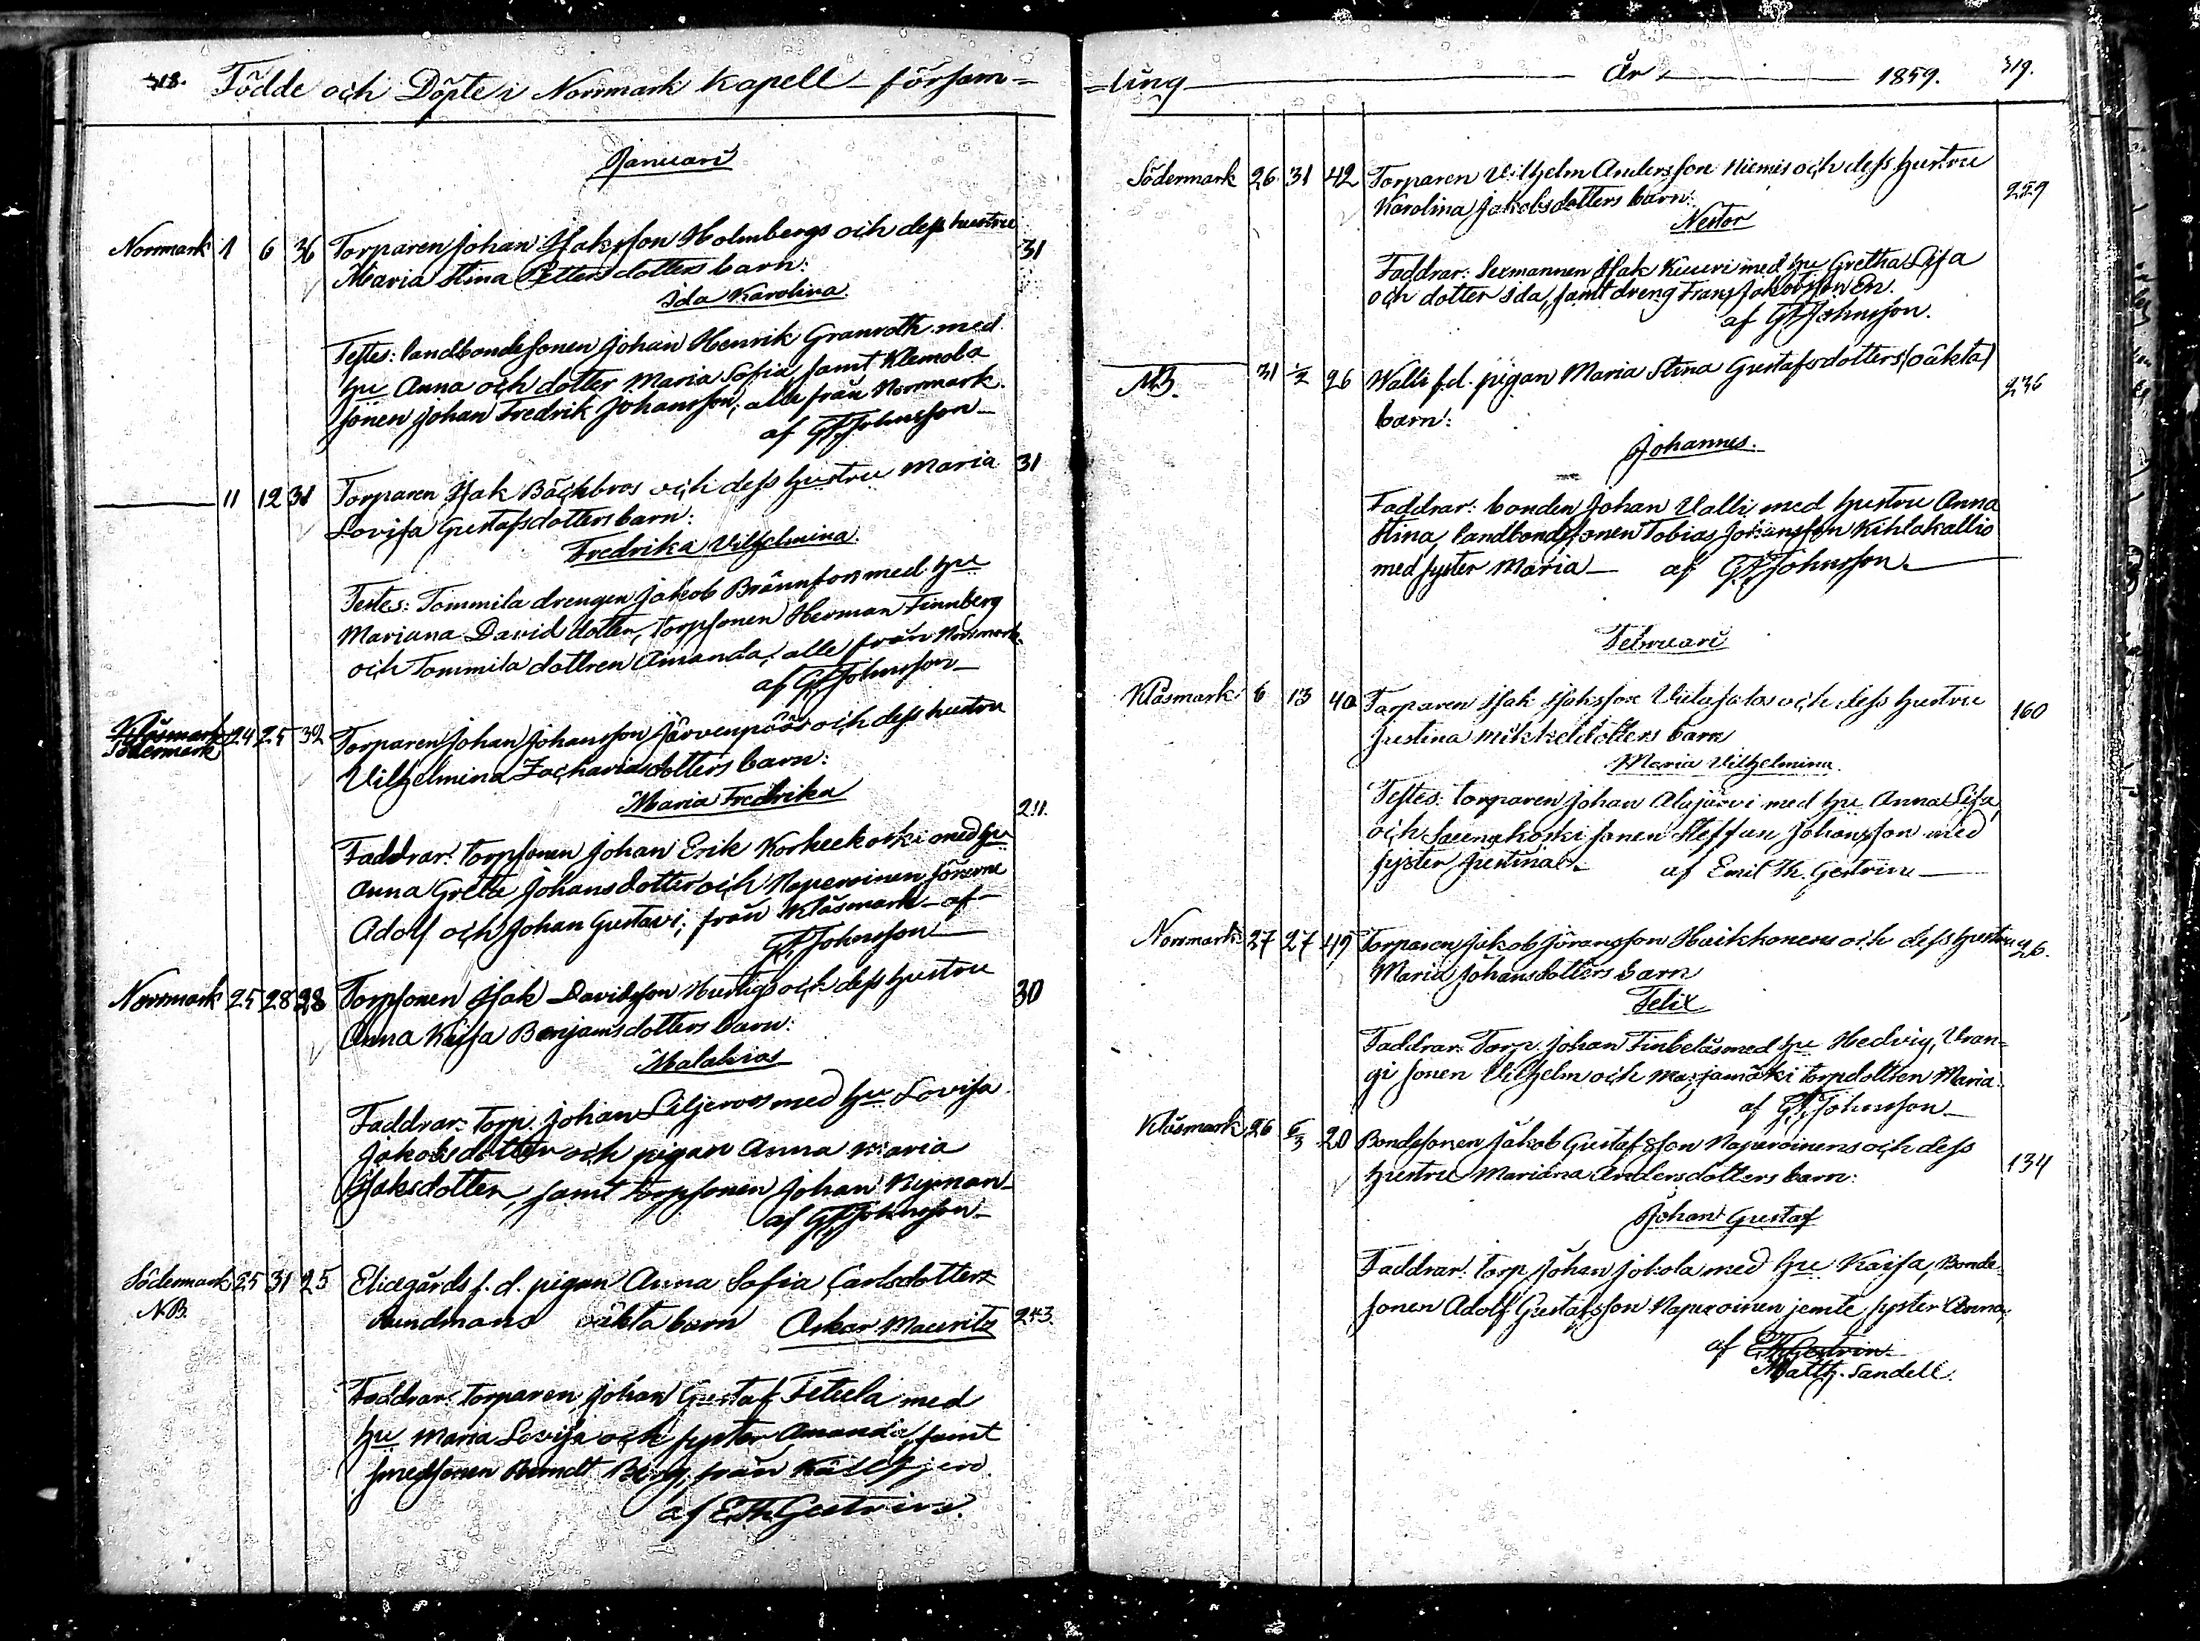 318. Födde och Döpte i Norrmark Kapell-församling
Januari
Norrmark 1 6 36 Torparen Johan Isaksson Holmbergs och dess hustru 31
Maria Stina Pettersdotters barn:
Ida Karolina
Testes: landbondesonen Johan Henrik Granroth med
hu Anna och dotter Maria Sofia samt Klemola
sonen Johan Fredrik Johansson, alla från Norrmark.
af G. Johnsson
11 12 31 Torparen Isak Bäckbros och dess hustru Maria 31
Lovisa Gustafsdotters barn:
Fredrika Vilhelmina.
Testes: Tommila drengen Jakob Brännfors med hu
Mariana Davidsdotter, torpsonen Herman Finnberg
och Tommila dottren Amanda, alle från Norrmark
af G. Johnsson
Klåsmark
Södermark 24 25 32 Torparen Johan Johansson Järvenpääs och dess hustru
Vilhelmina Zachariasdotters barn:
Maria Fredrika
211.
Faddrar: torpsonen Johan Erik Korkeekoski med hu
Anna Greta Johansdotter och Naperoinen sönerne
Adolf och Johan Gustavi, från Klåsmark af
G. Johnsson
Norrmark 25 28 28 Torpsonen Isak Davidsson Hurtigs och dess hustru 30
Anna Kajsa Benjamsdotters barn:
Malakias
Faddrar: Torp. Johan Liljeroos med hu Lovisa
Jakobsdotter och pigan Anna Maria
Isaksdotter, samt torpsonen Johan Nyman
af G. Johnsson
Södermark 25 31 25 f. d. pigan Anna Sofia Carlsdotters
N.B. oäkta barn Oskar Mauritz 243.
Faddrar: torparen Johan Gustaf Fetula med
hu Maria Lovisa och syster Amanda, samt
smedsonen Berndt Berg, från
af E. Th. Gestrin.
-ling År 1859. 319.
Södermark 26 31 42 Torparen Vilhelm Andersson Niemis och dess hustru 229
Karolina Jakobsdotters barn:
Nestor
Faddrar: Sexmannen Isak Kuuri med hu Gretha Lisa
och dotter Ida, samt dreng Frans Jakobsson En.
af G. Johnsson.
NB. 31 1/2 26 Walli f.d. pigan Maria Stina Gustafsdotters (oäkta) 236
barn:
Johannes.
Faddrar: bonden Johan Valli med hustru Anna
Stina, landbondesonen Tobias Johansson Kihlakallio
med syster Maria af G. Johnsson
Februari
Klåsmark 6 13 40 Torparen Isak Isaksson Viitasalos och dess hustru 160
Justina Mikkelsdotters barn
Maria Vilhelmina.
Testes: torparen Johan Alajärvi med hu Anna Lisa,
och sonen Steffan Johansson med
syster Justina. af Emil Th. Gestrin
Norrmark 27 27 49 Torparen Jakob Göransson Haikkonens och dess hustru 26.
Maria Johansdotters barn
Felix
Faddrar: Torp. Johan Finbeläs med hu Hedvig, Vran-
gi sonen Vilhelm och Marjamäki torpdottren Maria
af G. Johnsson
Klåsmark 26 6/3 20 Bondesonen Jakob Gustafsson Naperoinens och dess 134
hustru Mariana Andersdotters barn:
Johan Gustaf
Faddrar: torp. Johan Jokola med hu Kaisa, Bonde-
sonen Adolf Gustafsson Naperoinen jemte syster Anna,
af E. Th. Gestrin
Matth. Sandell.